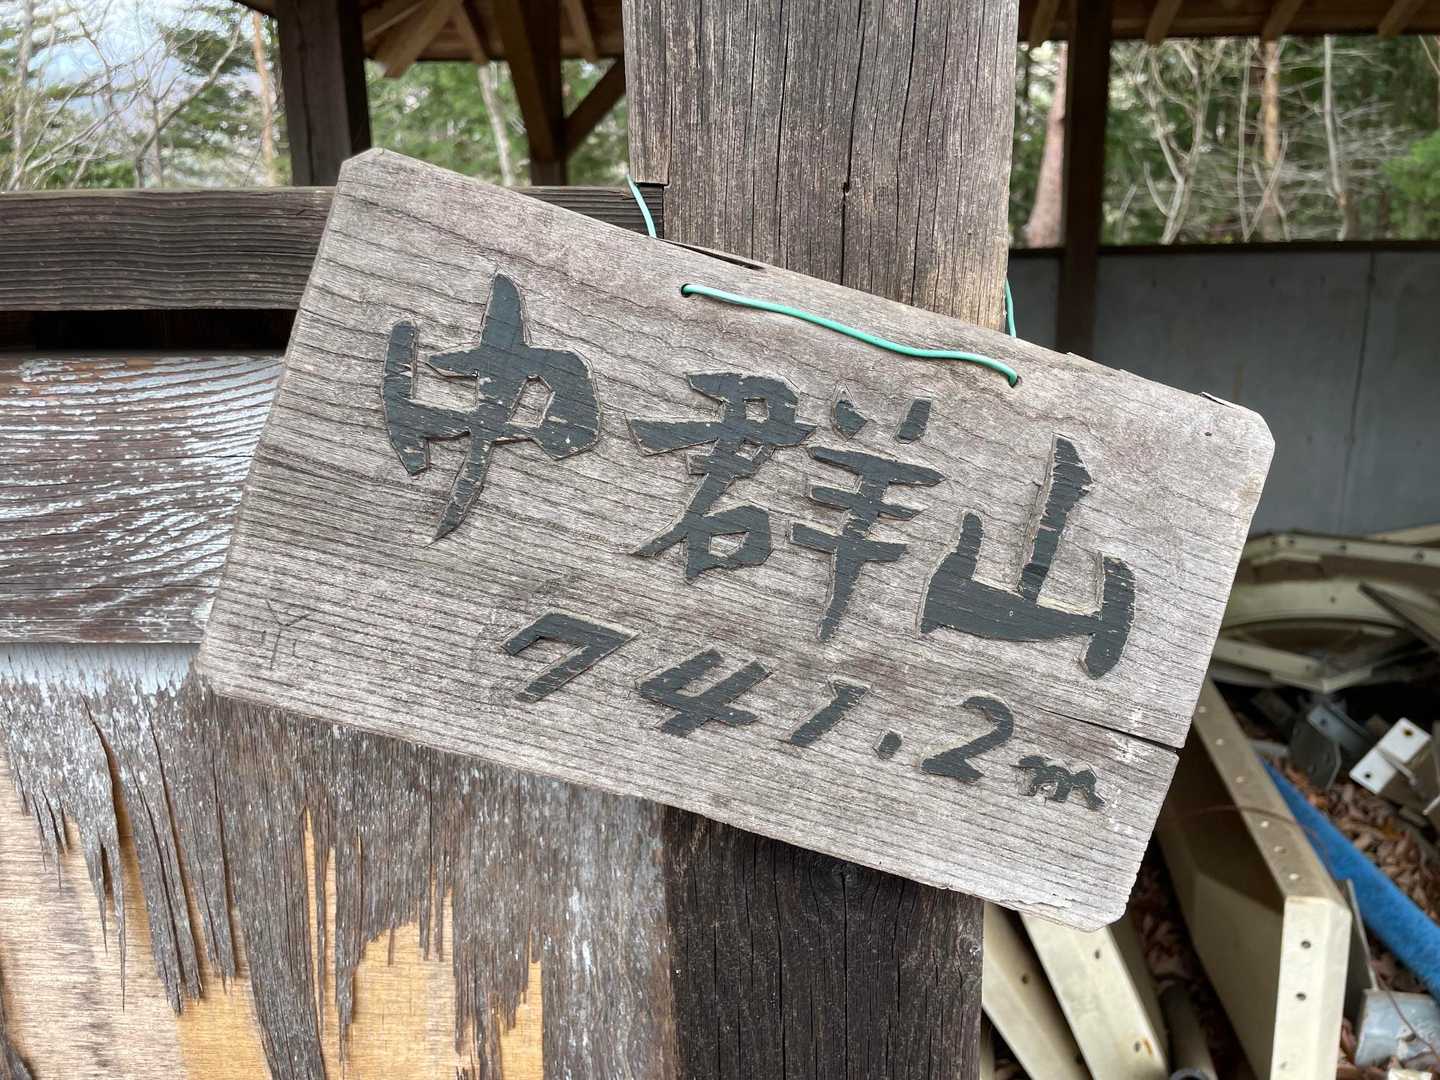 中群山
741.2m